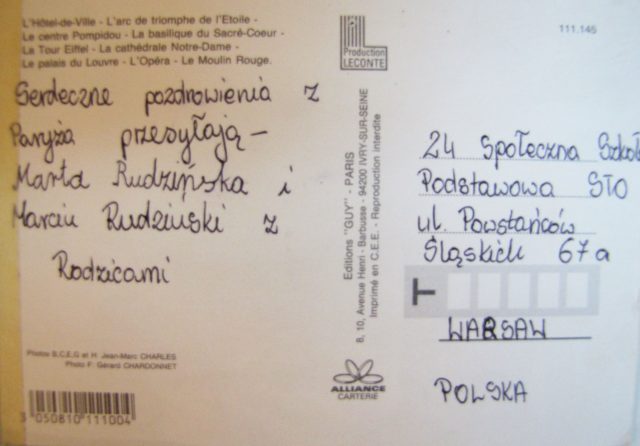 L'Hôtel-de-Ville - L'arc de triomphe de l'Etoile -
Le centre Pompidou - La basilique du Sacré-Coeur -
La Tour Eiffel - La cathédrale Notre-Dame -
Le palais du Louvre - L'Opéra - Le Moulin Rouge.
Serdeczne pozdrowienia z
Paryża przesyłają -
Marta Rudzińska i
Marcin Rudziński z
Rodzicami
Photos S.C.E.G et H. Jean-Marc CHARLES
Photo F: Gérard CHARDONNET
3 050810 111004
Production
LECONTE
Editions "GUY" - PARIS
8, 10, Avenue Henri - Barbusse - 94200 IVRY-SUR-SEINE
Imprimé en C.E.E. - Reproduction interdite
ALLIANCE
CARTERIE
111.145
24 Społeczna Szkoła
Podstawowa STO
ul. Powstańców
Śląskich 67a
WARSAW
POLSKA